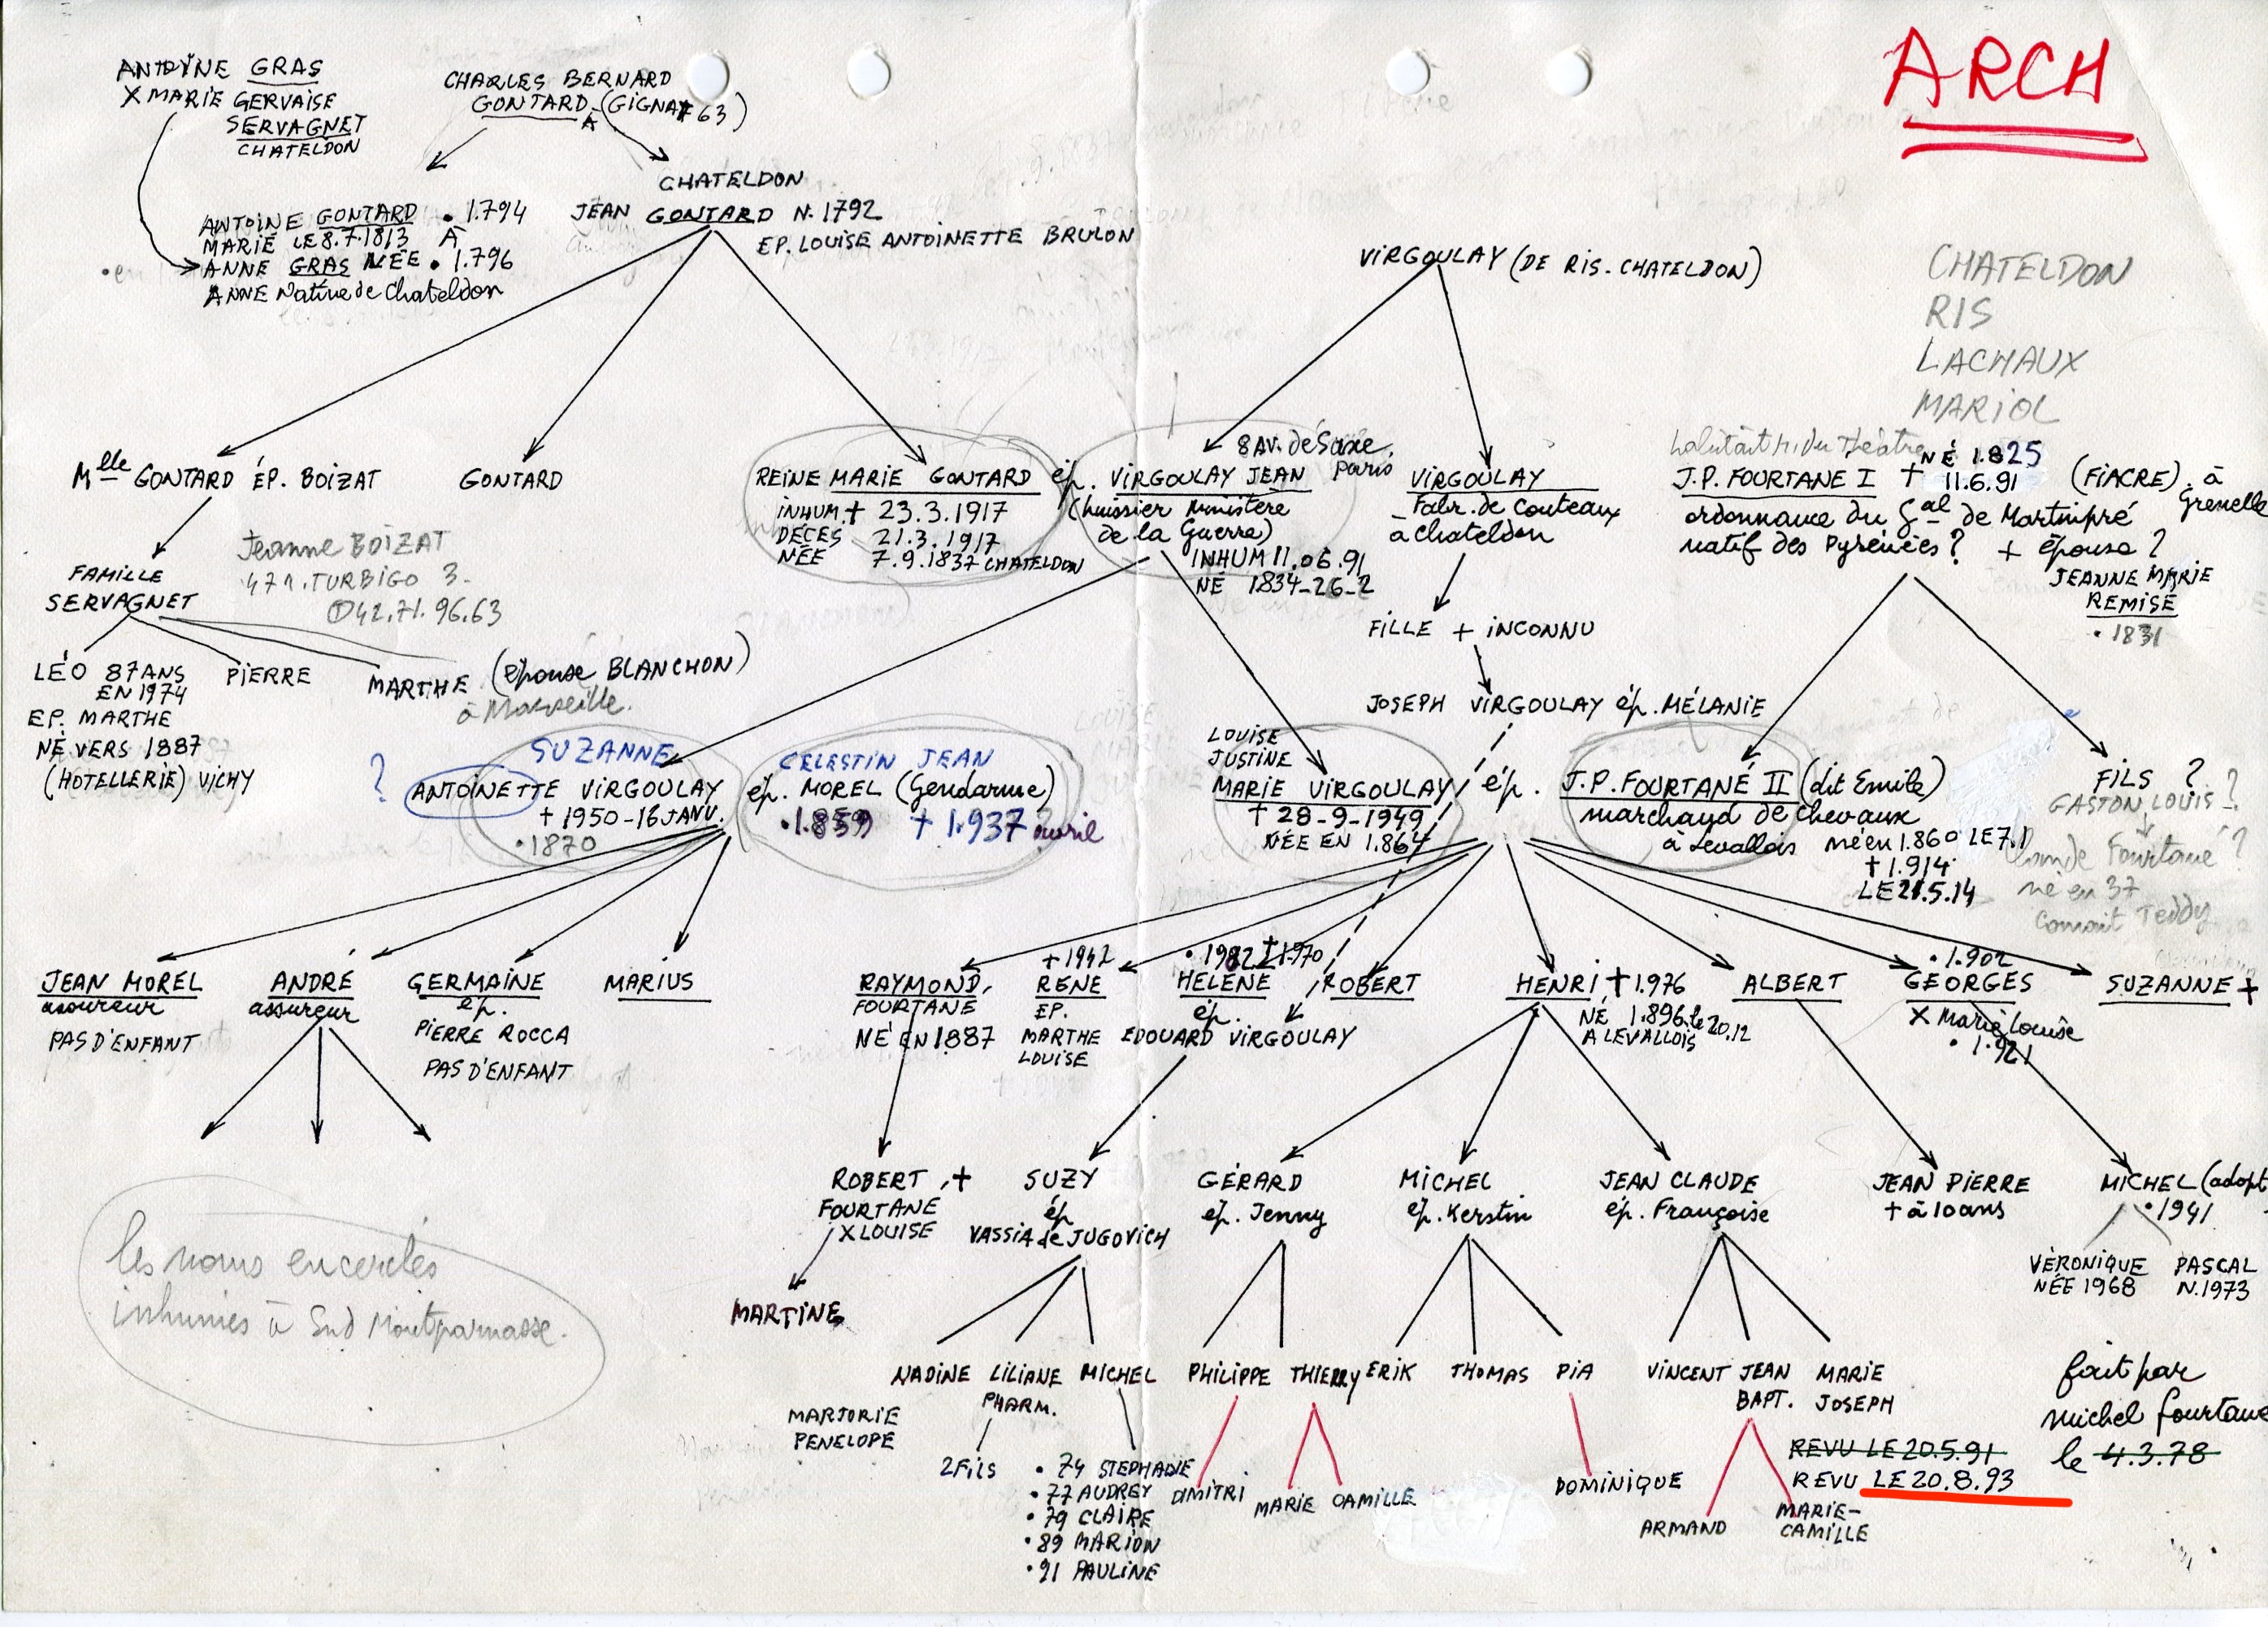 ARCH
ANTOYNE GRAS
X MARIE GERVAISE
SERVAGNET
CHATELDON
CHARLES BERNARD
GONTARD (GIGNAT 63)
À
CHATELDON
JEAN GONTARD N. 1792
EP. LOUISE ANTOINETTE BRULON
ANTOINE GONTARD • 1.794
MARIÉ LE 8.7.1813 À
ANNE GRAS NÉE • 1.796
ANNE Native de Chateldon
VIRGOULAY (DE RIS. CHATELDON)
CHATELDON
RIS
LACHAUX
MARIOL
Mlle GONTARD ÉP. BOIZAT
GONTARD
REINE MARIE GONTARD
INHUM. † 23.3.1917
DÉCÈS 21.3.1917
NÉE 7.9.1837 CHATELDON
ép. VIRGOULAY JEAN
8 AV. de Saxe
Paris
(huissier Ministère
de la Guerre)
INHUM 11.06.91
NÉ 1834-26-2
VIRGOULAY
Fabr. de Couteaux
à Chateldon
habitait r. du Théâtre
J.P. FOURTANE I † NÉ 1.825
11.6.91 (FIACRE) à
Grenelle
ordonnance du Gal de Martinpré
natif des Pyrénées ? + épousa ?
JEANNE MARIE
REMISE
• 1831
FAMILLE
SERVAGNET
Jeanne BOIZAT
47 r. TURBIGO 3.
42.71.96.63
FILLE + INCONNU
LÉO 87 ANS
EN 1974
EP. MARTHE
NÉ VERS 1887
(HOTELLERIE) VICHY
PIERRE
MARTHE (épouse BLANCHON)
à Marseille.
JOSEPH VIRGOULAY ép. MÉLANIE
? SUZANNE
ANTOINETTE VIRGOULAY
† 1950-16 JANV.
• 1870
CELESTIN JEAN
ép. MOREL (Gendarme)
• 1.859 † 1.937 avril
LOUISE
JUSTINE
MARIE VIRGOULAY
† 28-9-1949
NÉE EN 1.864
ép. J.P. FOURTANÉ II (dit Emile)
marchand de Chevaux
à Levallois né en 1.860 LE 7.1
† 1.914
LE 21.5.14
FILS ?
GASTON LOUIS ?
Fourtané ?
né en 37
connait Teddy
JEAN MOREL
assureur
PAS D'ENFANT
ANDRÉ
assureur
GERMAINE
ép.
PIERRE ROCCA
PAS D'ENFANT
MARIUS
RAYMOND,
FOURTANE
NÉ EN 1887
+ 1942
RENE
EP.
MARTHE
LOUISE
† 1.970
HELENE
ép.
EDOUARD VIRGOULAY
ROBERT
HENRI † 1.976
NÉ 1.896 le 20.12
A LEVALLOIS
ALBERT
• 1.902
GEORGES
X Marie Louise
• 1.921
SUZANNE +
ROBERT, +
FOURTANE
X LOUISE
SUZY
ép
VASSIA de JUGOVICH
GÉRARD
ép. Jenny
MICHEL
ép. Kerstin
JEAN CLAUDE
ép. Françoise
JEAN PIERRE
† à 10 ans
MICHEL (adopt
• 1941
VÉRONIQUE
NÉE 1968
PASCAL
N. 1973
les noms encerclés
inhumés à Sud Montparnasse.
MARTINE
NADINE
LILIANE
PHARM.
MICHEL
PHILIPPE
THIERRY
ERIK
THOMAS
PIA
VINCENT
JEAN
BAPT.
MARIE
JOSEPH
MARJORIE
PENELOPE
2 FILS
• 74 STEPHANIE
• 77 AUDREY
• 79 CLAIRE
• 89 MARION
• 91 PAULINE
DIMITRI
MARIE
CAMILLE
DOMINIQUE
ARMAND
MARIE-
CAMILLE
fait par
michel fourtane
le 4.3.78
REVU LE 20.5.91
REVU LE 20.8.93